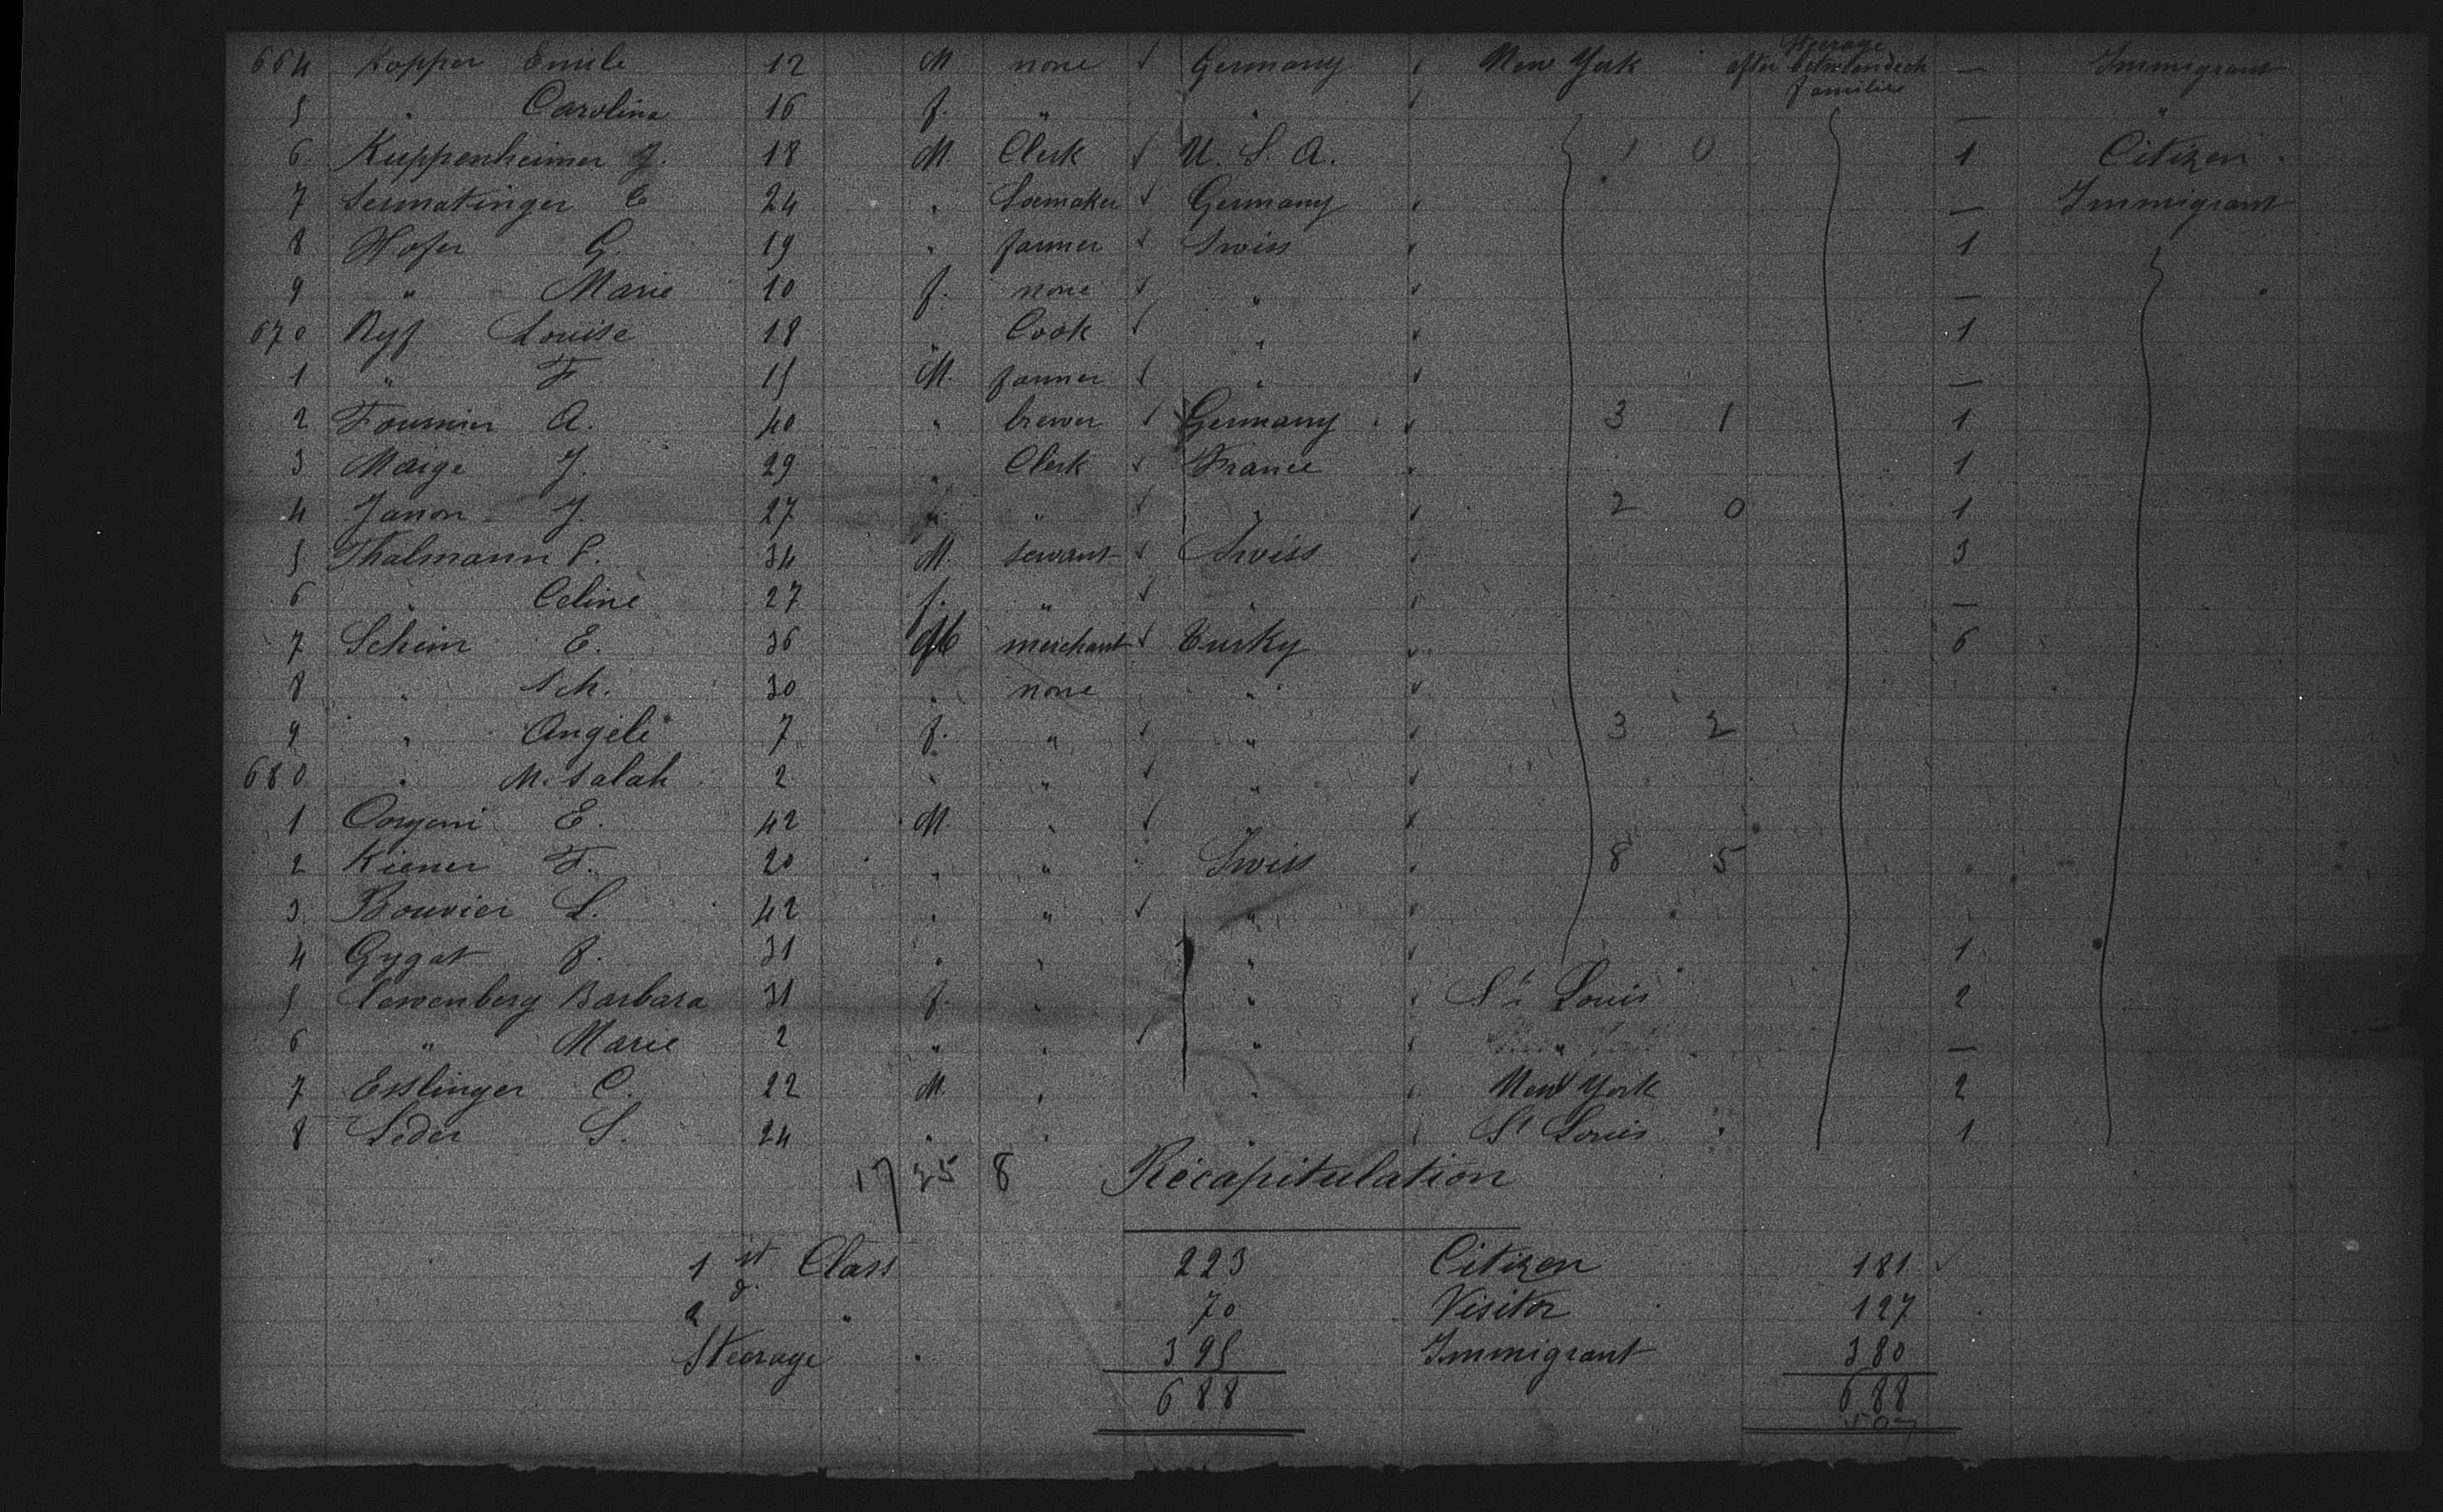 664 Kopper Emile 12 M none Germany New York Steerage after betwendeck families — Immigrant
5 " Carolina 16 f. " " — "
6 Kuppenheimer J. 18 M. Clerk U. S. A. 1 0 1 Citizen
7 Sermatinger E 24 " Soemaker Germany — Immigrant
8 Hofer G. 19 " farmer Swiss 1
9 " Marie 10 f. none " —
670 Ryf Louise 18 " Cook " 1
1 " F 15 M. farmer " —
2 Fournier A. 40 " brewer Germany 3 1 1
3 Maige J. 29 " Clerk France 1
4 Janon J. 27 " " " 2 0 1
5 Thalmann P. 34 M. servant Swiss 3
6 " Celine 27 f. " " —
7 Schim E. 36 M merchant Turky 6
8 " Sch. 30 " none "
9 " Angeli 7 f. " " 3 2
680 " M. Salah 2 " " "
1 E. 42 M. " "
2 Kiener F. 20 " " Swiss 8 5
3 Bouvier L. 42 " " "
4 Gygat f. 31 " " " 1
5 Lewenberg Barbara 31 f. " " St. Louis 2
6 " Marie 2 " " " —
7 Esslinger C. 22 M. " " New York 2
8 Seder S. 24 " " " St Louis 1
17 25 8 Récapitulation
1st Class 223 Citizen 181
2d. " 70 Visitor 127
Steerage 395 Immigrant 380
688 688